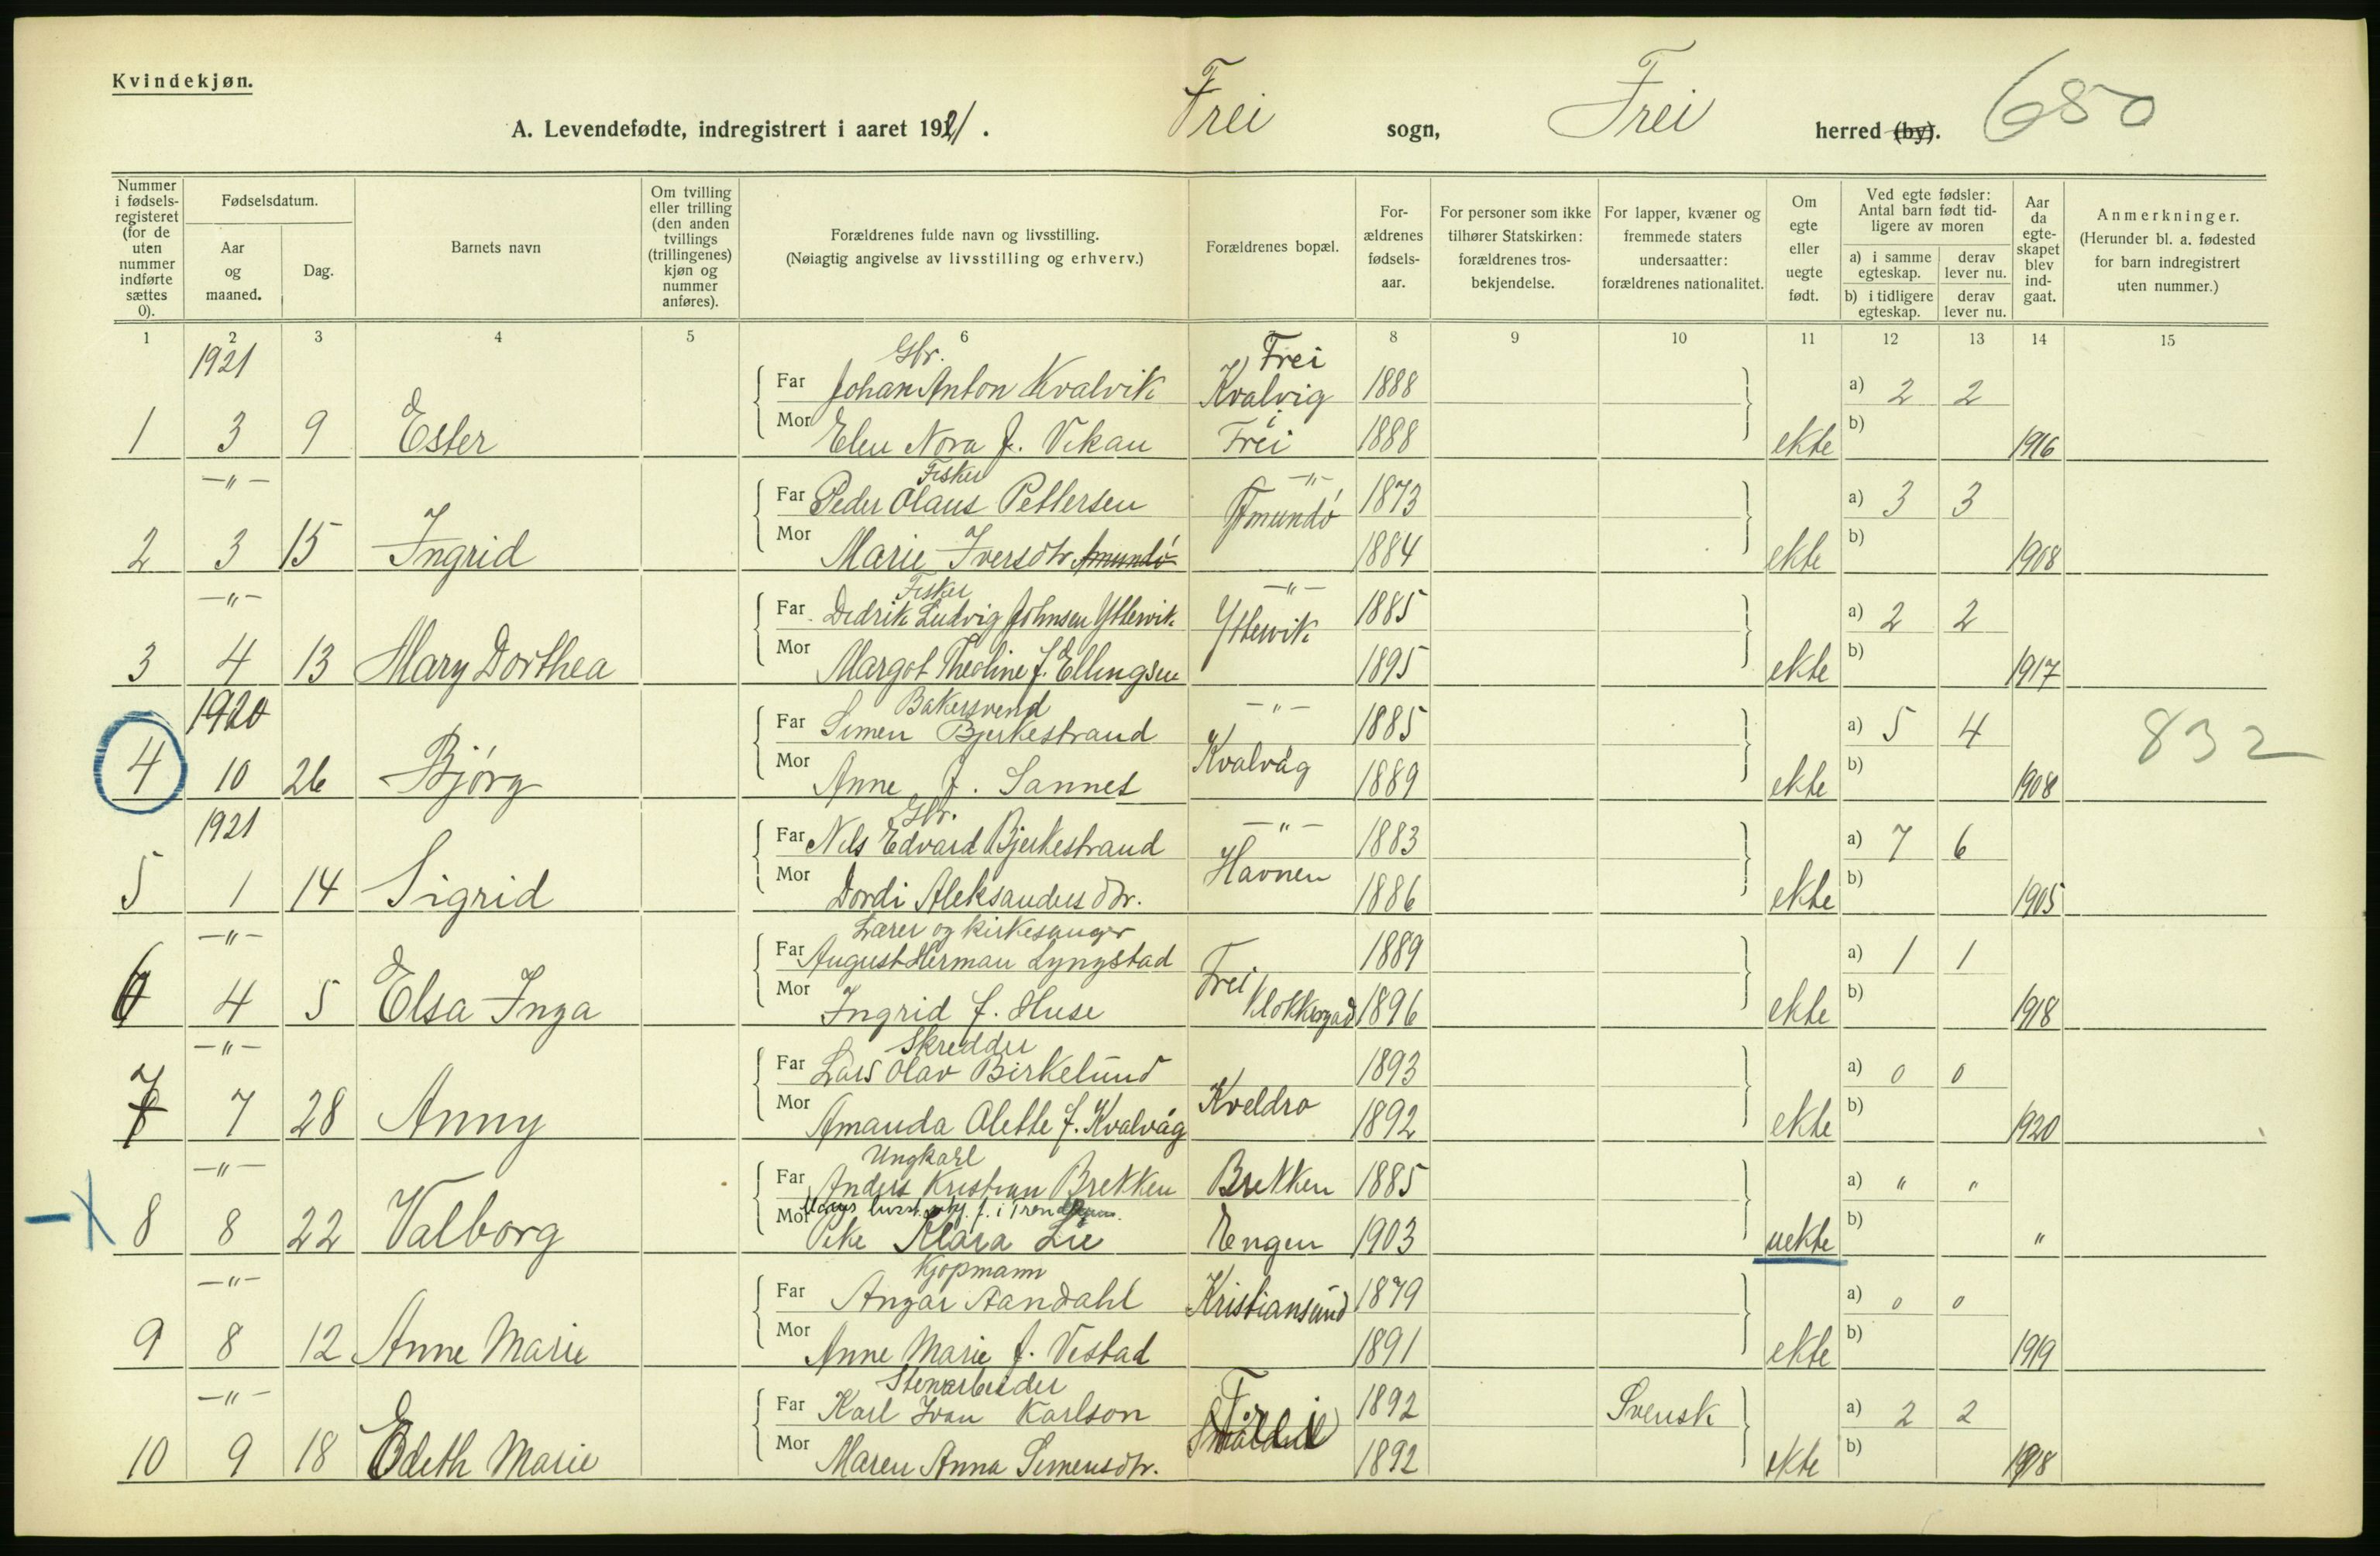 Kvindekjøn.
A. Levendefødte, indregistrert i aaret 1921. Frei sogn, Frei herred (by). 650
Nummer i fødsels-registeret (for de uten nummer indførte sættes 0).
Fødselsdatum.
Aar og maaned.
Dag.
Barnets navn
Om tvilling eller trilling (den anden tvillings (trillingenes) kjøn og nummer anføres).
Forældrenes fulde navn og livsstilling.
(Nøiagtig angivelse av livsstilling og erhverv.)
Forældrenes bopæl.
For-ældrenes fødsels-aar.
For personer som ikke tilhører Statskirken: forældrenes tros-bekjendelse.
For lapper, kvæner og fremmede staters undersaatter: forældrenes nationalitet.
Om egte eller uegte født.
Ved egte fødsler: Antal barn født tid-ligere av moren
a) i samme egteskap.
derav lever nu.
b) i tidligere egteskap.
derav lever nu.
Aar da egte-skapet blev ind-gaat.
Anmerkninger.
(Herunder bl. a. fødested for barn indregistrert uten nummer.)
1 2 3 4 5 6 7 8 9 10 11 12 13 14 15
1921 Gbr. Frei
Far Johan Anton Kvalvik Kvalvig 1888 a) 2 2
1 3 9 Ester Mor Elen Nora f. Vikan i Frei 1888 ekte b) 1916
—"— Fisker —"—
Far Peder Olaus Pettersen 1873 a) 3 3
2 3 15 Ingrid Mor Marie Iversdtr. Amundö 1884 ekte b) 1908
—"— Fisker —"—
Far Didrik Ludvig Johnsen Yttervik Yttervik 1885 a) 2 2
3 4 13 Mary Dorthea Mor Margot Theoline f. Ellingsen 1895 ekte b) 1917
1920 Bakersvend —"—
Far Simen Bjerkestrand 1885 a) 5 4 832
4 10 26 Bjørg Mor Anne f. Sannes Kvalvåg 1889 ekte b) 1908
1921 Gbr. —"—
Far Nils Edvard Bjerkestrand Havnen 1883 a) 7 6
5 1 14 Sigrid Mor Dordi Aleksandersdtr. 1886 ekte b) 1905
—"— Lærer og kirkesanger
Far August Herman Lyngstad Frei 1889 a) 1 1
6 4 5 Elsa Inga Mor Ingrid f. Huse Klokkergard 1896 ekte b) 1918
—"— Skredder
Far Lars Olav Birkelund 1893 a) 0 0
7 7 28 Anny Mor Amanda Olette f. Kvalvåg Kveldro 1892 ekte b) 1920
—"— Ungkarl
Far Anders Kristian Brekken Brekken 1885 a) " "
8 8 22 Valborg Mor Pike Klara Lie Engen 1903 uekte b) "
—"— Kjøpmann
Far Angar Aandahl Kristiansund 1879 a) 0 0
9 8 12 Anne Marie Mor Anne Marie f. Vestad 1891 ekte b) 1919
—"— Stenarbeider
Far Karl Ivan Karlson 1892 Svensk a) 2 2
10 9 18 Edith Marie Mor Maren Anna Simensdtr. 1892 ekte b) 1918